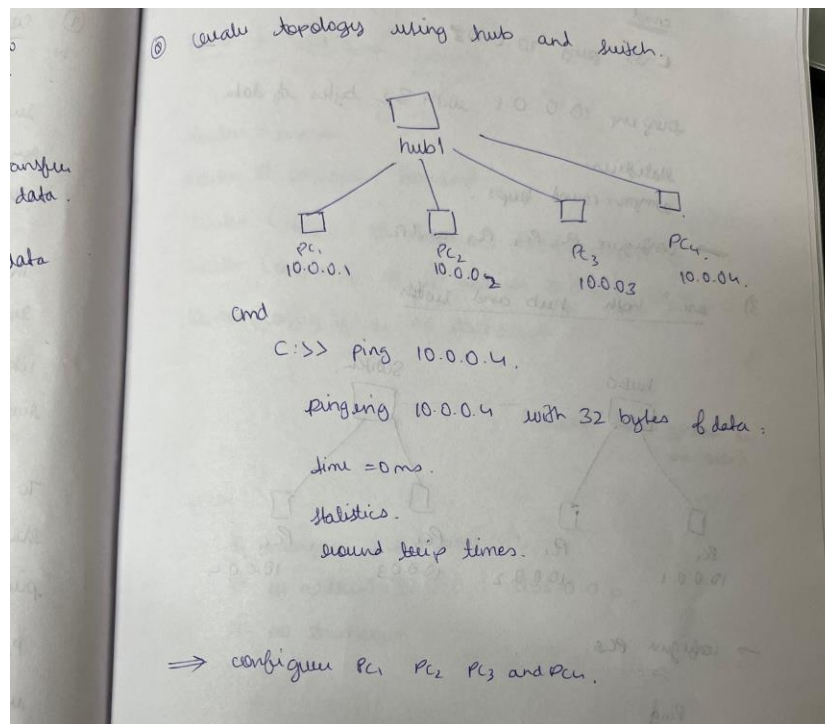 create topology using hub and switch.
hub1
PC1 PC2 PC3 PC4.
10.0.0.1 10.0.0.2 10.0.03 10.0.04.
cmd
C:>> ping 10.0.0.4.
pinging 10.0.0.4 with 32 bytes of data :
time = 0ms.
statistics.
round trip times.
⇒ configure PC1 PC2 PC3 and PC4.
ansfer
data.
data